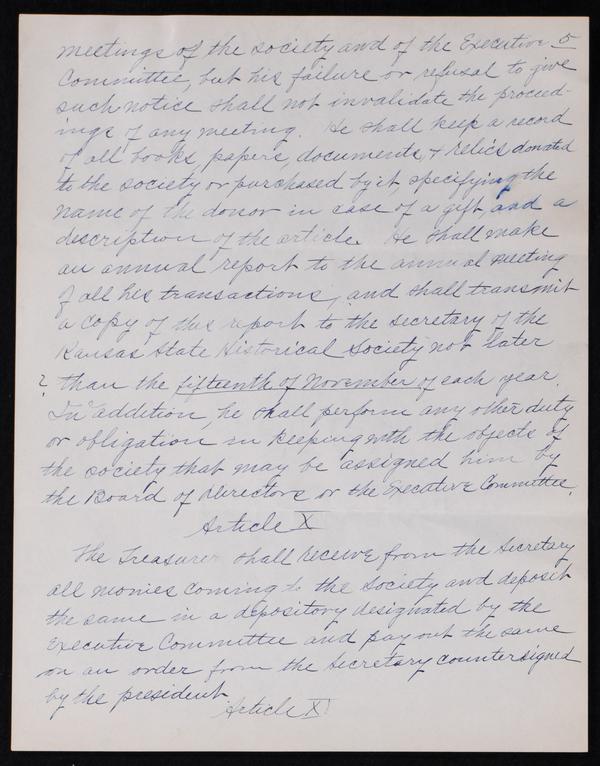 meetings of the society and of the Executive 5
Committee, but his failure or refusal to give
such notice shall not invalidate the proceed-
ings of any meeting. He shall keep a record
of all books, papers, documents, & relics donated
to the society or purchased by it specifying the
name of the donor in case of a gift, and a
discription of the article. He shall make
an annual report to the annual meeting
of all his transactions, and shall transmit
a copy of this report to the secretary of the
Kansas State Historical Society not later
? than the fifteenth of November of each year.
In addition, he shall perform any other duty
or obligation in keeping with the objects of
the society that may be assigned him by
the Board of Directors or the Executive Committee.
Article X
The Treasurer shall receive from the Secretary
all monies coming to the Society and deposit
the same in a depository designated by the
Executive Committee and pay out the same
on an order from the Secretary countersigned
by the president
Article XI